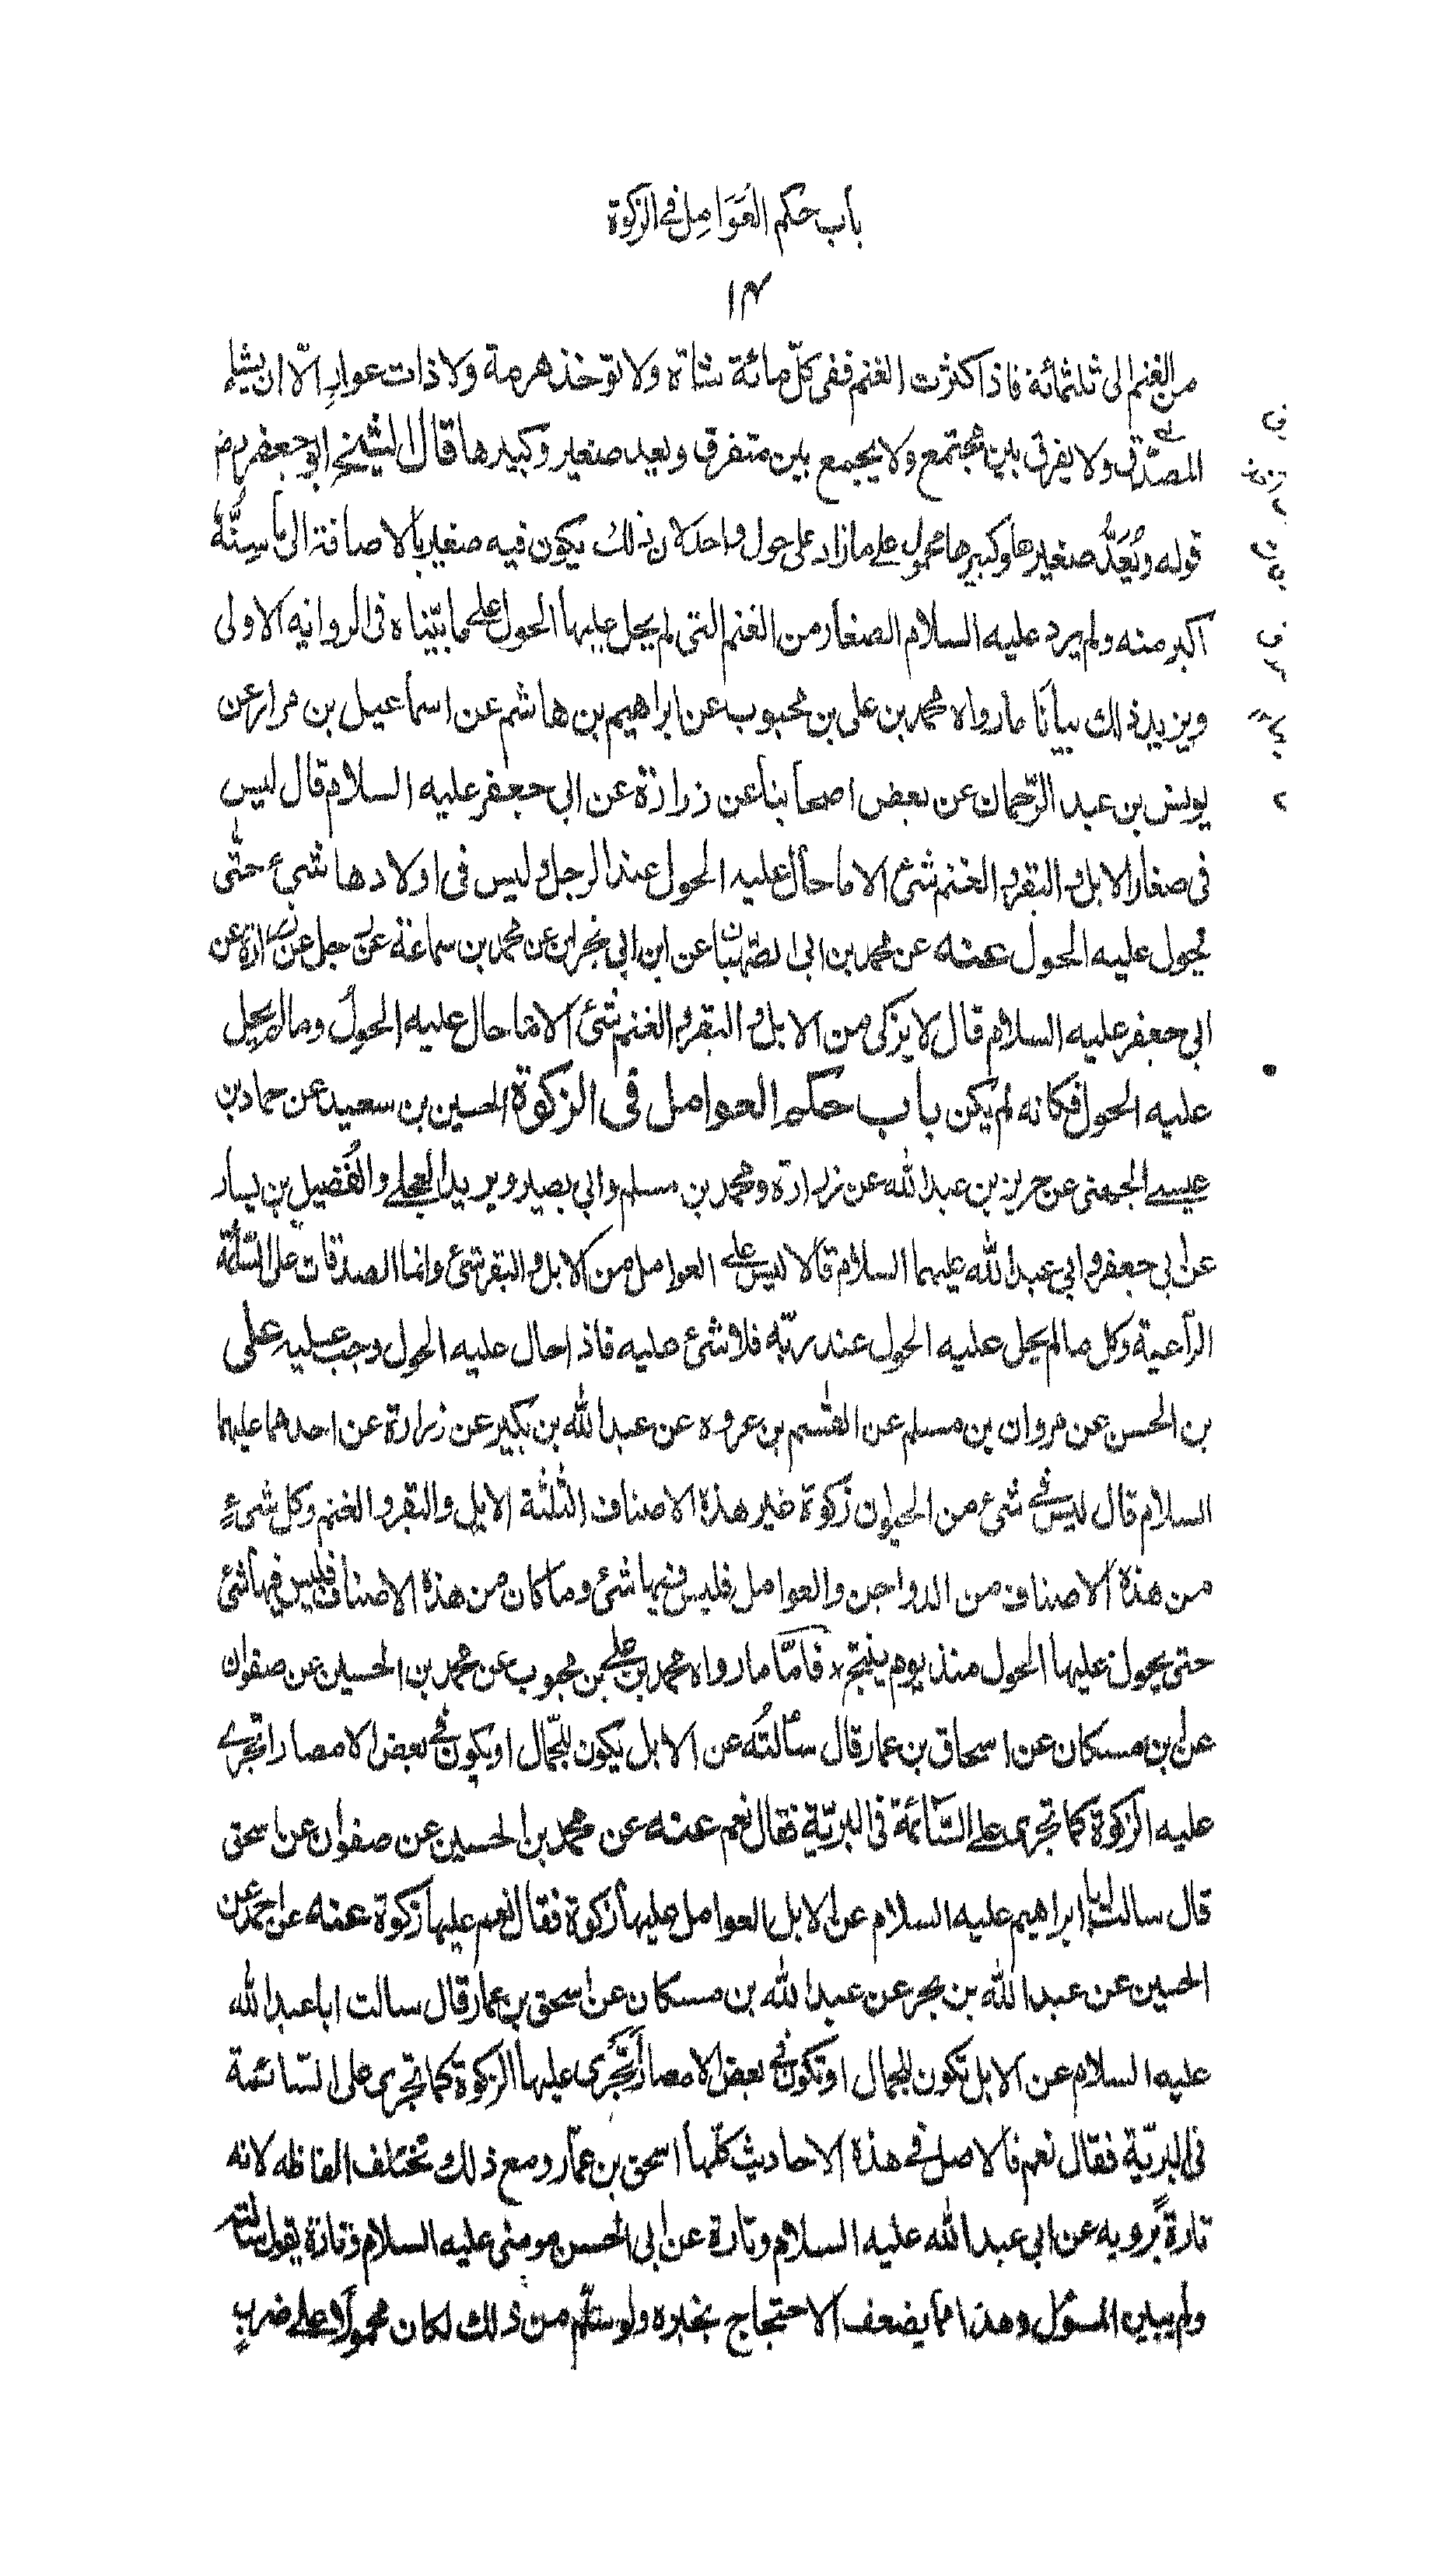 باب حكم العَوَامِل في الزكوة
١٤
من الغنم الى ثلثمائة فاذا كثرت الغنم ففي كلّ مائة شاة ولا توخذ هرمة ولا ذات عوارٍ الّا ان يشاء
المصدّق ولا يفرق بين مجتمع ولا يجمع بين متفرق ويعد صغير وكبيرها قال الشيخ ابو جعفر رض
قوله ويُعَدُّ صغيرها وكبيرها محمول على مازاد على حول واحد لان ذلك يكون فيه صغير بالاضافة الى ما سِنُّهُ
اكبر منه ولم يرد عليه السلام الصغار من الغنم التى لم يحل عليها الحول على ما بيّناه فى الرواية الاولى
ويزيد ذلك بيانا ما رواه محمد بن على بن محبوب عن ابراهيم بن هاشم عن اسماعيل بن مرار عن
يونس بن عبد الرّحمان عن بعض اصحابنا عن زرارة عن ابي جعفر عليه السلام قال ليس
فى صغار الابل والبقر والغنم شئ الا ما حال عليه الحول عند الرجل وليس فى اولادها شئ حتّى
يحول عليه الحول عنه عن محمد بن ابى الصهبان عن ابن ابي نجران عن محمد بن سماعة عن رجل عن زرارة عن
ابي جعفر عليه السلام قال لا يزكى من الابل والبقر والغنم شئ الا ما حال عليه الحول وما لم يحل
عليه الحول فكانه لم يكن باب حكم العوامل فى الزكوة الحسين بن سعيد عن حماد بن
عيسى الجهنى عن حريز بن عبد الله عن زرارة ومحمد بن مسلم وابي بصير وبريد العجلى والفُضيل بن يسار
عن ابي جعفر وابي عبد الله عليهما السلام قالا ليس على العوامل من الابل والبقر شئ وانما الصدقات على السّائمة
الراعية وكل ما لم يحل عليه الحول عند ربّه فلا شئ عليه فاذا حال عليه الحول وجب عليه على
بن الحسن عن مروان بن مسلم عن القسم بن عروه عن عبد الله بن بكير عن زرارة عن احدهما عليهما
السلام قال ليس في شئ من الحيوان زكوة غير هذه الاصناف الثلثة الابل والبقر والغنم وكل شىءٍ
من هذه الاصناف من الدواجن والعوامل فليس فيها شئ وما كان من هذه الاصناف فليس فيها شئ
حتى يحول عليها الحول منذ يوم ينتج فامّا ما رواه محمد بن على بن محبوب عن محمد بن الحسين عن صفوان
عن ابن مسكان عن اسحاق بن عمار قال سألتُه عن الابل يكون للجّمال او يكون في بعض الامصار اتجرى
عليه الزكوة كما تجرى على السّائمة فى البريّة فقال نعم عنه عن محمد بن الحسين عن صفوان عن اسحق
قال سالت ابا ابراهيم عليه السلام عن الابل العوامل عليها زكوة فقال نعم عليها زكوة عنه عن احمد عن
الحسين عن عبد الله بن بحر عن عبد الله بن مسكان عن اسحق بن عمار قال سالت ابا عبد الله
عليه السلام عن الابل تكون للجمال او تكون في بعض الامصار أتَجْرى عليها الزكوة كما تجرى على السّائمة
في البريّة فقال نعم فالاصل في هذه الاحاديث كلّها اسحق بن عمّار ومع ذلك تختلف الفاظه لانه
تارةً يرويه عن ابي عبد الله عليه السلام وتارة عن ابي الحسن موسى عليه السلام وتارة يقول سالته
ولم يبين المسؤل وهذا مما يضعف الاحتجاج بخبره ولو سلّم من ذلك لكان محمولا على ضربٍ